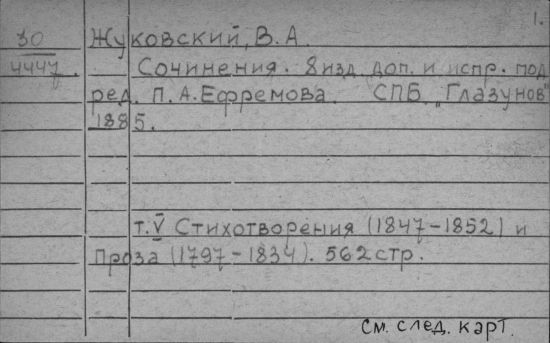 1.
30 Жуковский, В. А.
4447. Сочинения. 8 изд. доп. и испр. под
ред. П. А. Ефремова. СПБ. „Глазунов"
1885.
т. V Стихотворения (1847-1852) и
Проза (1797-1834). 562 стр.
См. след. карт.